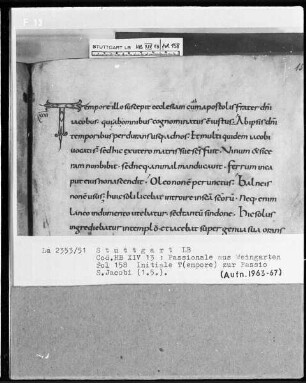 STUTTGART LB HB XIV 13 fol. 158
Tempore illo suscepit ecclesiam cum apostolis frater dni
iacobus qui ab omnibus cognominatus e iustus Ab ipsis dni
temporibus perdurans usq ad nos Et multi quidem iacobi
uocati sed hic ex utero matris sue scs fuit Uinum & sice
ram non bibit sed neq animal manducauit Ferrum in ca
put eius non ascendit Oleo non e perunctus Balneis
non e usus huic soli licebat introire in sca scoru Neq enim
laneo indumento utebatur sed tantu sindone Hic solus
ingrediebatur in templo & iacebat super genua sua orans
La 2353/51 Stuttgart LB
Cod.HB XIV 13 : Passionale aus Weingarten
Fol 158 Initiale T(empore) zur Passio
S.Jacobi (1.5.). (Aufn.1963-67)